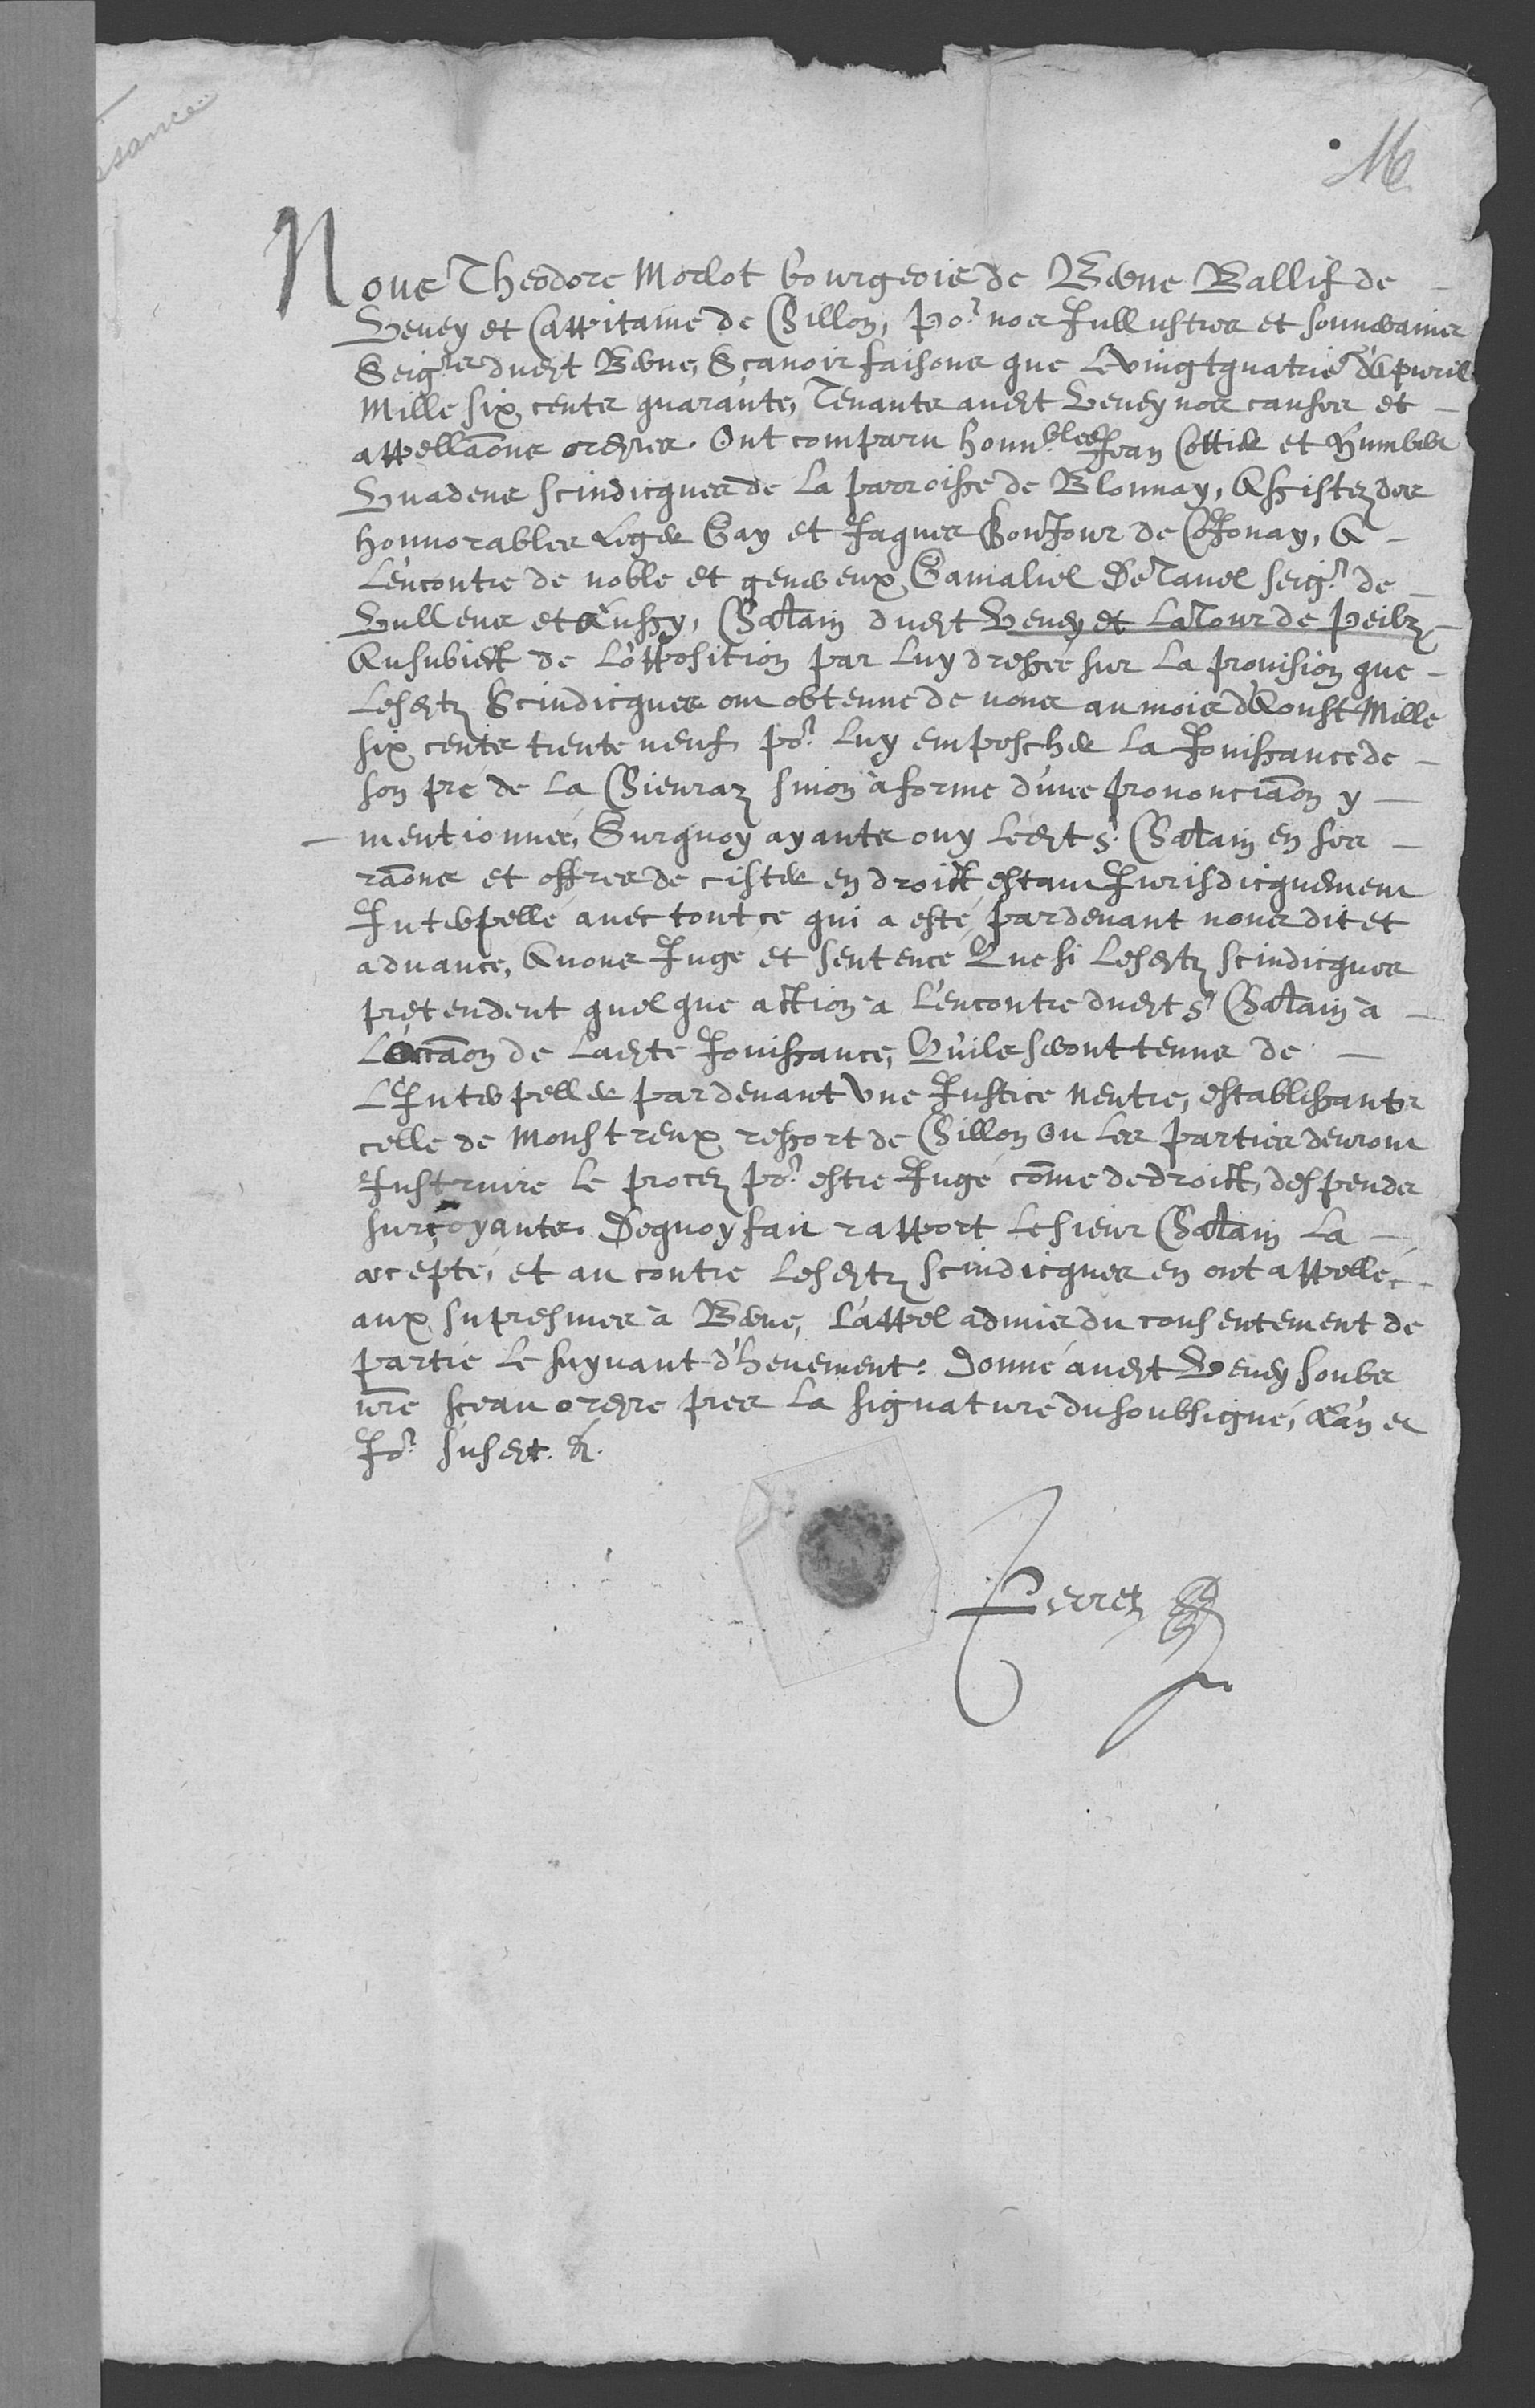 sance
M
Nous Theodore Morlot bourgeois de Berne Ballif de
Vevey et Cappitaine de Chillon, Po.r nos Jllustres et souuerains
Seig.rs dudit Berne, Sçauoir faisons que Le vingtquatrie d'Apuril
Mille six cents quarante, Tenants audit Vevey nos causes et
appellãons ordres. Ont comparu honn.bles Jean Cottier et Humbert
Vuadens scindicques de La parroisse de Blonnay, Assistez des
honnorables Leger Gay et Jaques Bonjour de Chonay, A
L'encontre de noble et genereux Gamaliel De Tauel seig.r de
Vullens et Lussy, Chãlain dudit Vevey et La Tour de Peilz
Ausubiect de L'opposition par Luy dressée sur La prouision que
Lesdtz Scindicques ont obtenue de nous au mois d'Aoust Mille
six cents trente neuf po.r Luy empescher La Jouissance de
son pre de La Chieuraz sinon à forme d'une prononciãon y
mentionnée, Surquoy ayants ouy Ledit s.r Chãlain en ses
rãons et offres de cister en droict estant Jurisdicquement
Interpellé auec tout ce qui a esté pardeuant nous dit et
aduancé, Auons Jugé et sentencé Que si Lesdtz scindicques
pretendent quelque action à L'encontre dudit s.r Chãlain à
L'occãon de Ladite Jouissance, Qu'ils seront tenus de
L'Interpeller pardeuant Vne Justice neutre, establissants
celle de Monstreux ressort de Chillon Ou Les parties deuront
Instruire Le procez po.r estre Jugé cõme de droict, despends
surçoyants. Dequoy fait rapport Le sieur Chãlain La
accepté, et au contre Lesdtz scindicques en ont appellé
aux supresmes à Berne, L'appel admis du consentement de
partie Le suyuant d'heuement. Donné audit Vevey soubs
nre sceau ordre pres La signature du soubsigné, L'an et
Jo.r susdt. &.
Perret